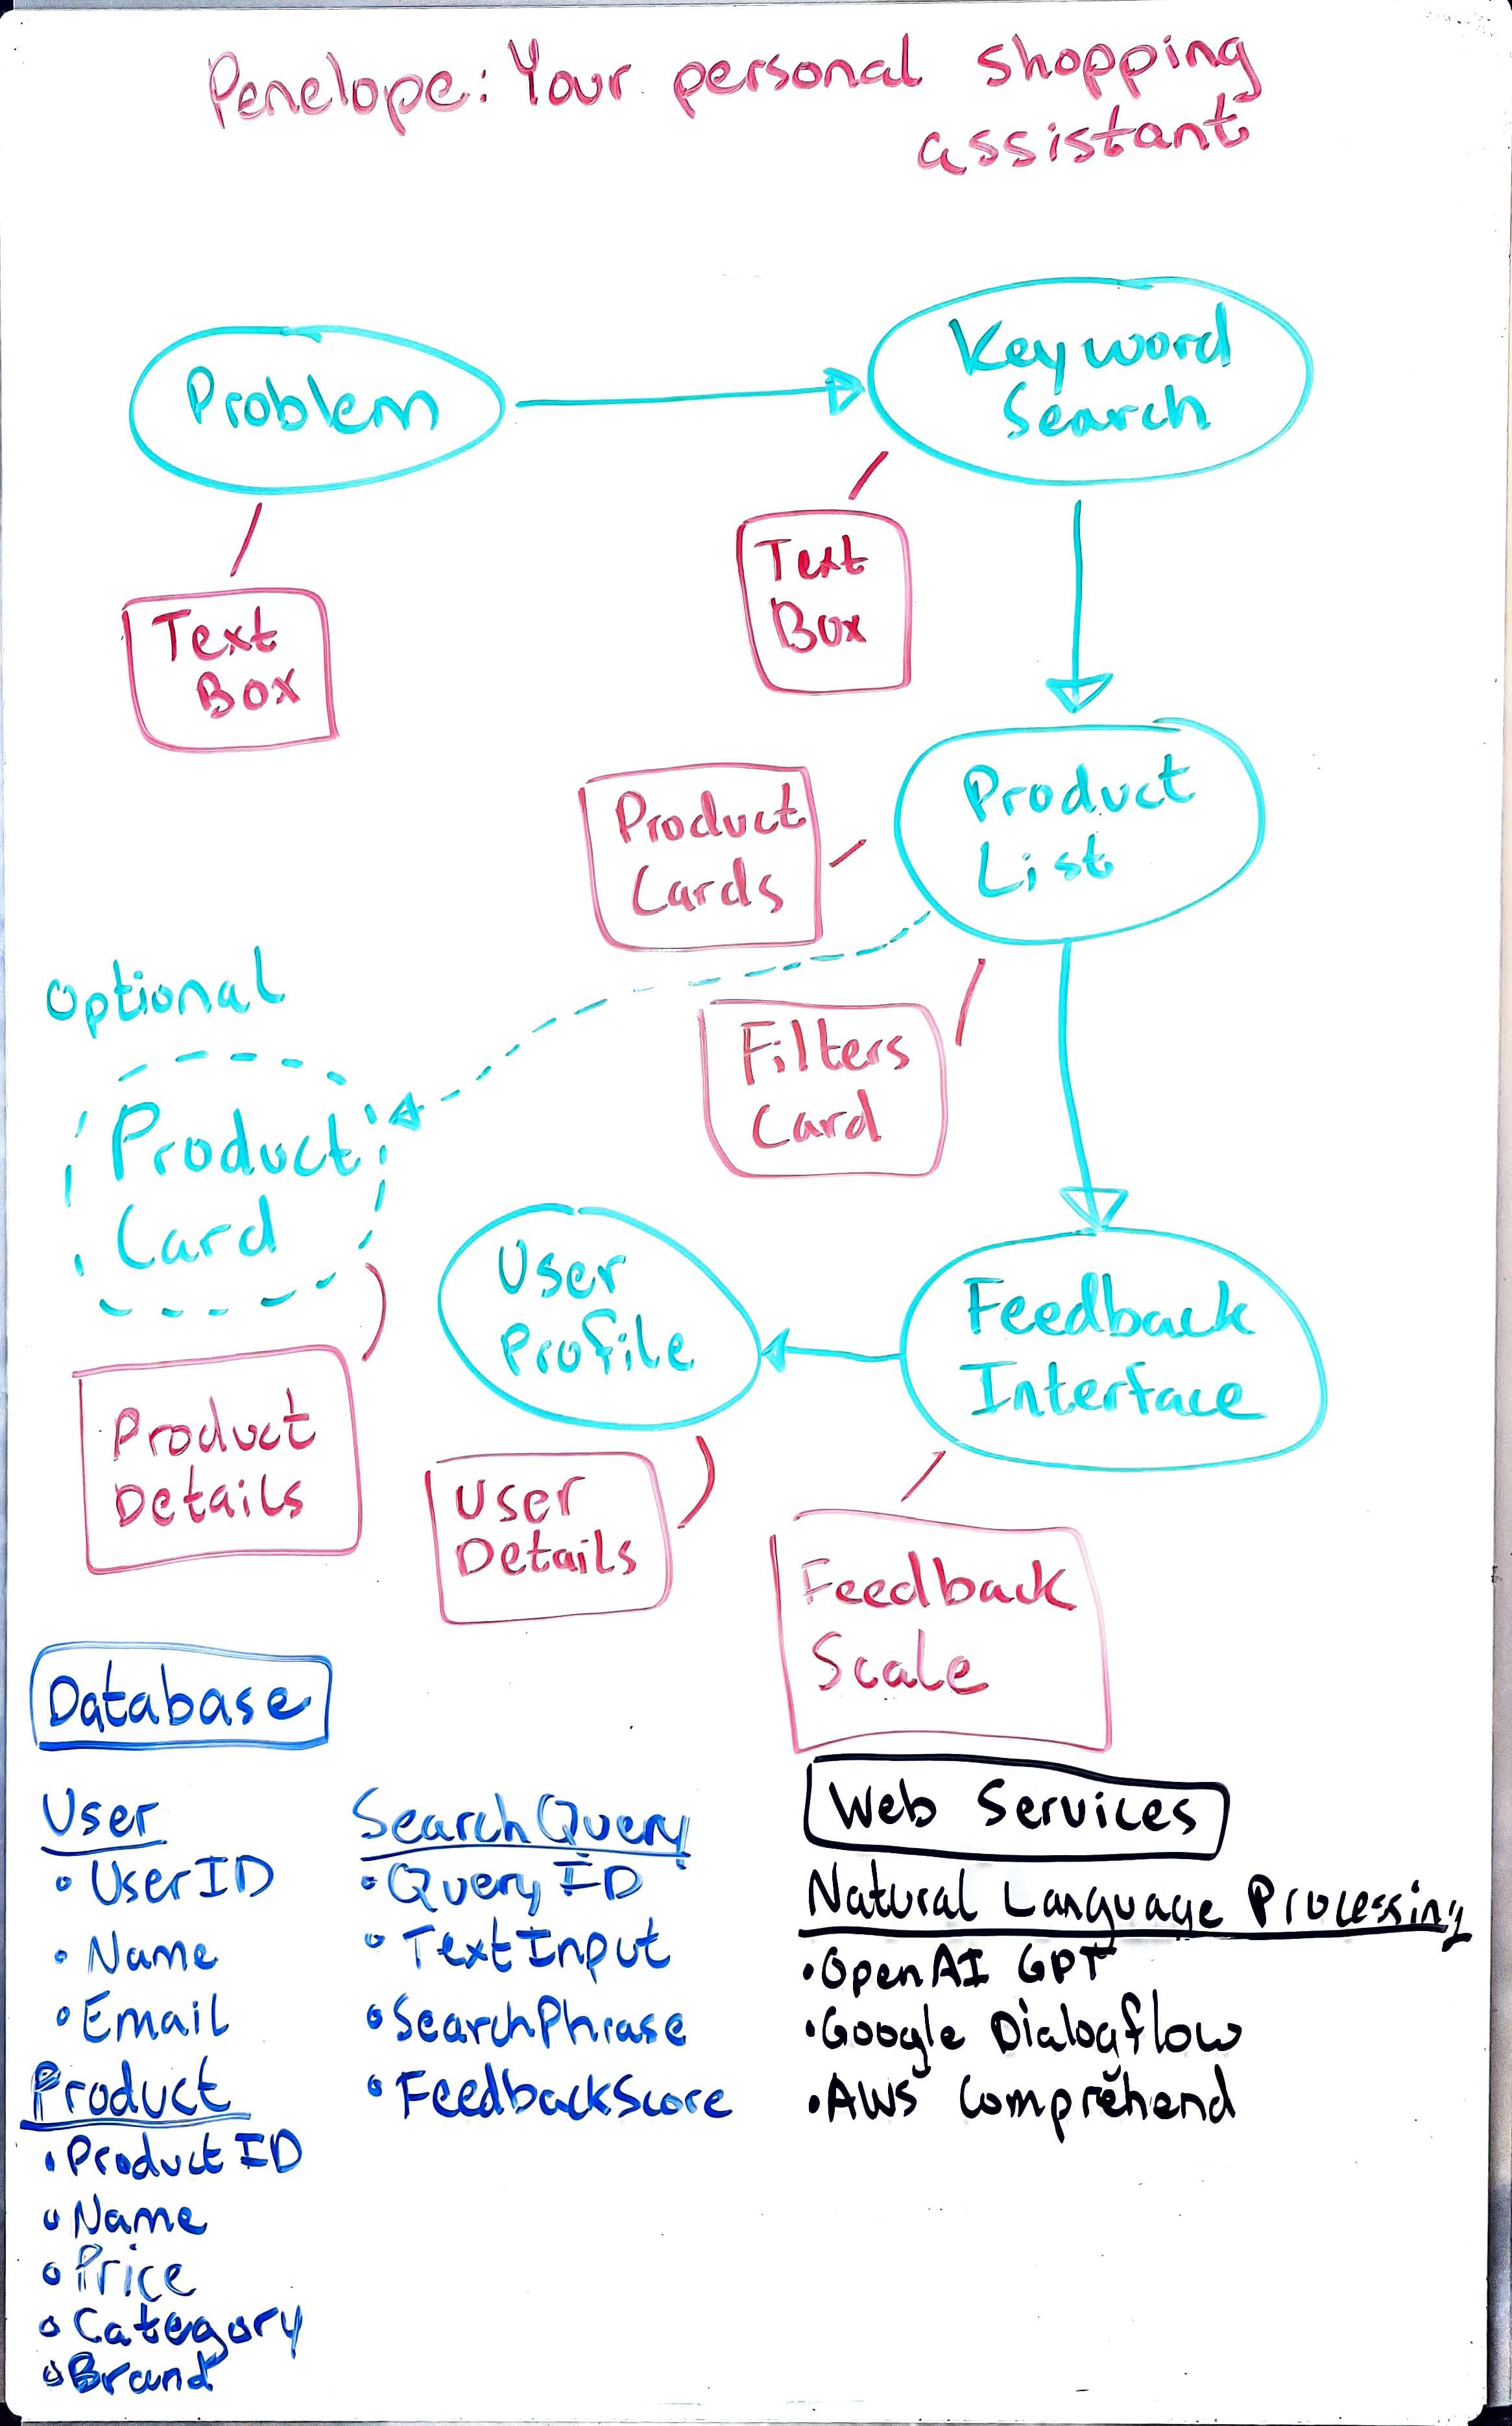 Penelope: Your personal shopping
assistant
Problem
Keyword
Search
Text
Box
Text
Box
Product
List
Product
Cards
Optional
Filters
Card
Product
Card
User
Profile
Feedback
Interface
Product
Details
User
Details
Feedback
Scale
Database
User
• UserID
• Name
• Email
Product
• ProductID
• Name
• Price
• Category
• Brand
SearchQuery
• QueryID
• TextInput
• SearchPhrase
• FeedbackScore
Web Services
Natural Language Processing
• OpenAI GPT
• Google Dialogflow
• AWS Comprehend